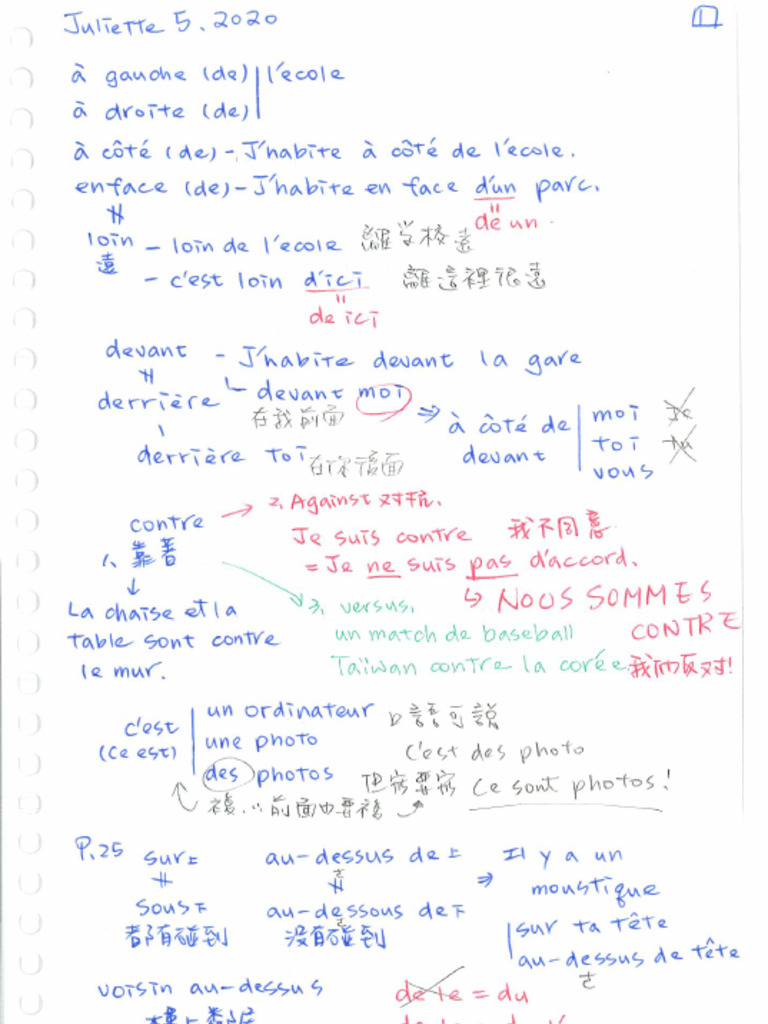 Juliette 5. 2020
1
à gauche (de) | l'école
à droite (de)
à côté (de) - J'habite à côté de l'école.
en face (de) - J'habite en face d'un parc.
de un
loin - loin de l'école 離学校遠
遠 - c'est loin d'ici 離這裡很遠
de ici
devant - J'habite devant la gare
derrière devant moi
在我前面
derrière toi 在你後面
⇒ à côté de | moi Je
devant | toi tu
vous
contre → 2. Against 对抗.
1. 靠著
Je suis contre 我不同意
= Je ne suis pas d'accord.
↳ NOUS SOMMES CONTRE
我们反对!
↓
La chaise et la
table sont contre
le mur.
3. versus.
un match de baseball
Taïwan contre la corée
c'est | un ordinateur 口語可說
(ce est) | une photo c'est des photo
des photos 但寫要寫 Ce sont photos!
複 前面也要複
P.25
sur上 au-dessus de上 ⇒ Il y a un
moustique
sous下 au-dessous de下
都有碰到 没有碰到
sur ta tête
au-dessus de tête
voisin au-dessus
de le = du
樓上鄰居